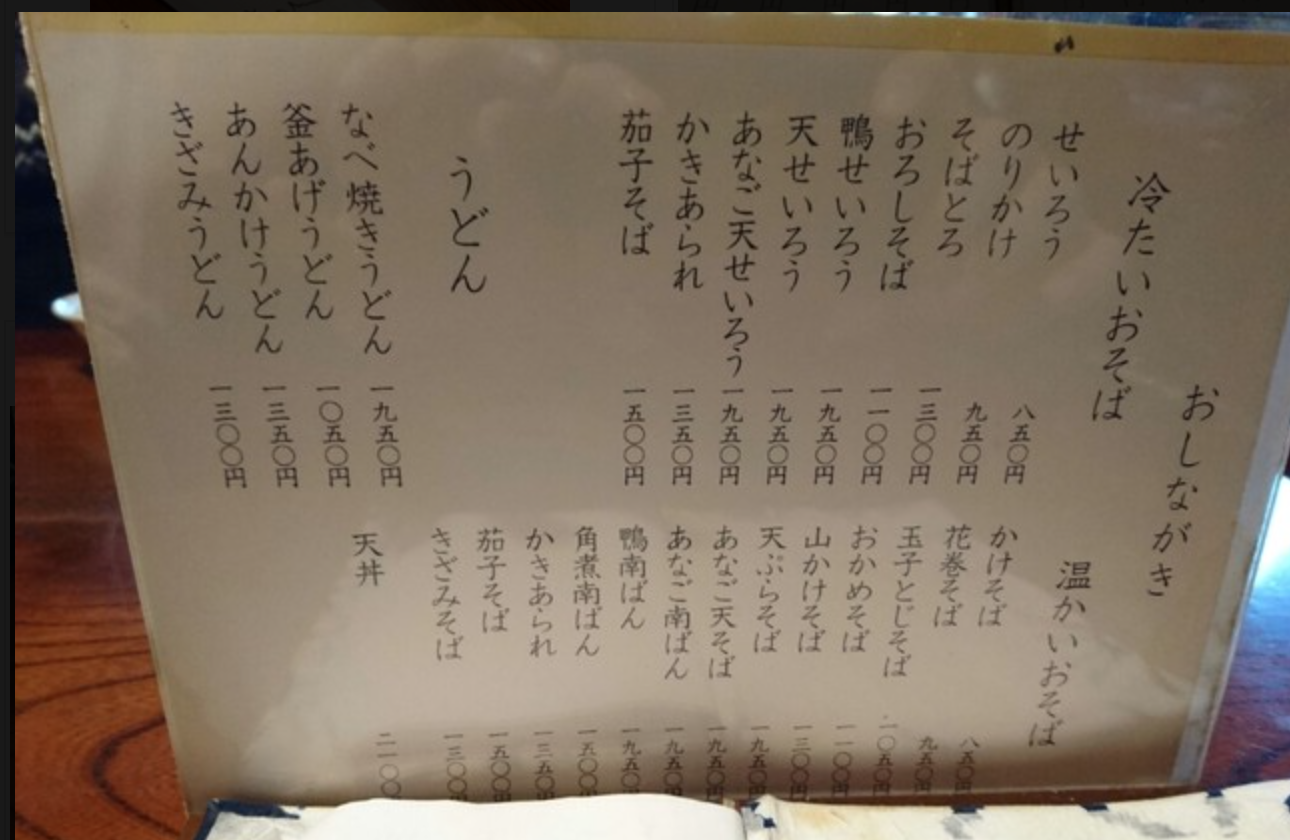 おしながき
冷たいおそば
せいろう 八五〇円
のりかけ 九五〇円
そばとろ 一三〇〇円
おろしそば 一一〇〇円
鴨せいろう 一九五〇円
天せいろう 一九五〇円
あなご天せいろう 一九五〇円
かきあられ 一三五〇円
茄子そば 一五〇〇円
うどん
なべ焼きうどん 一九五〇円
釜あげうどん 一〇五〇円
あんかけうどん 一三五〇円
きざみうどん 一三〇〇円
温かいおそば
かけそば 八五〇円
花巻そば 九五〇円
玉子とじそば 一〇五〇円
おかめそば 一一〇〇円
山かけそば 一三〇〇円
天ぷらそば 一九五〇円
あなご天そば 一九五〇円
あなご南ばん 一九五〇円
鴨南ばん 一九五〇円
角煮南ばん 一五〇〇円
かきあられ 一三五〇円
茄子そば 一五〇〇円
きざみそば 一三〇〇円
天丼 二一〇〇